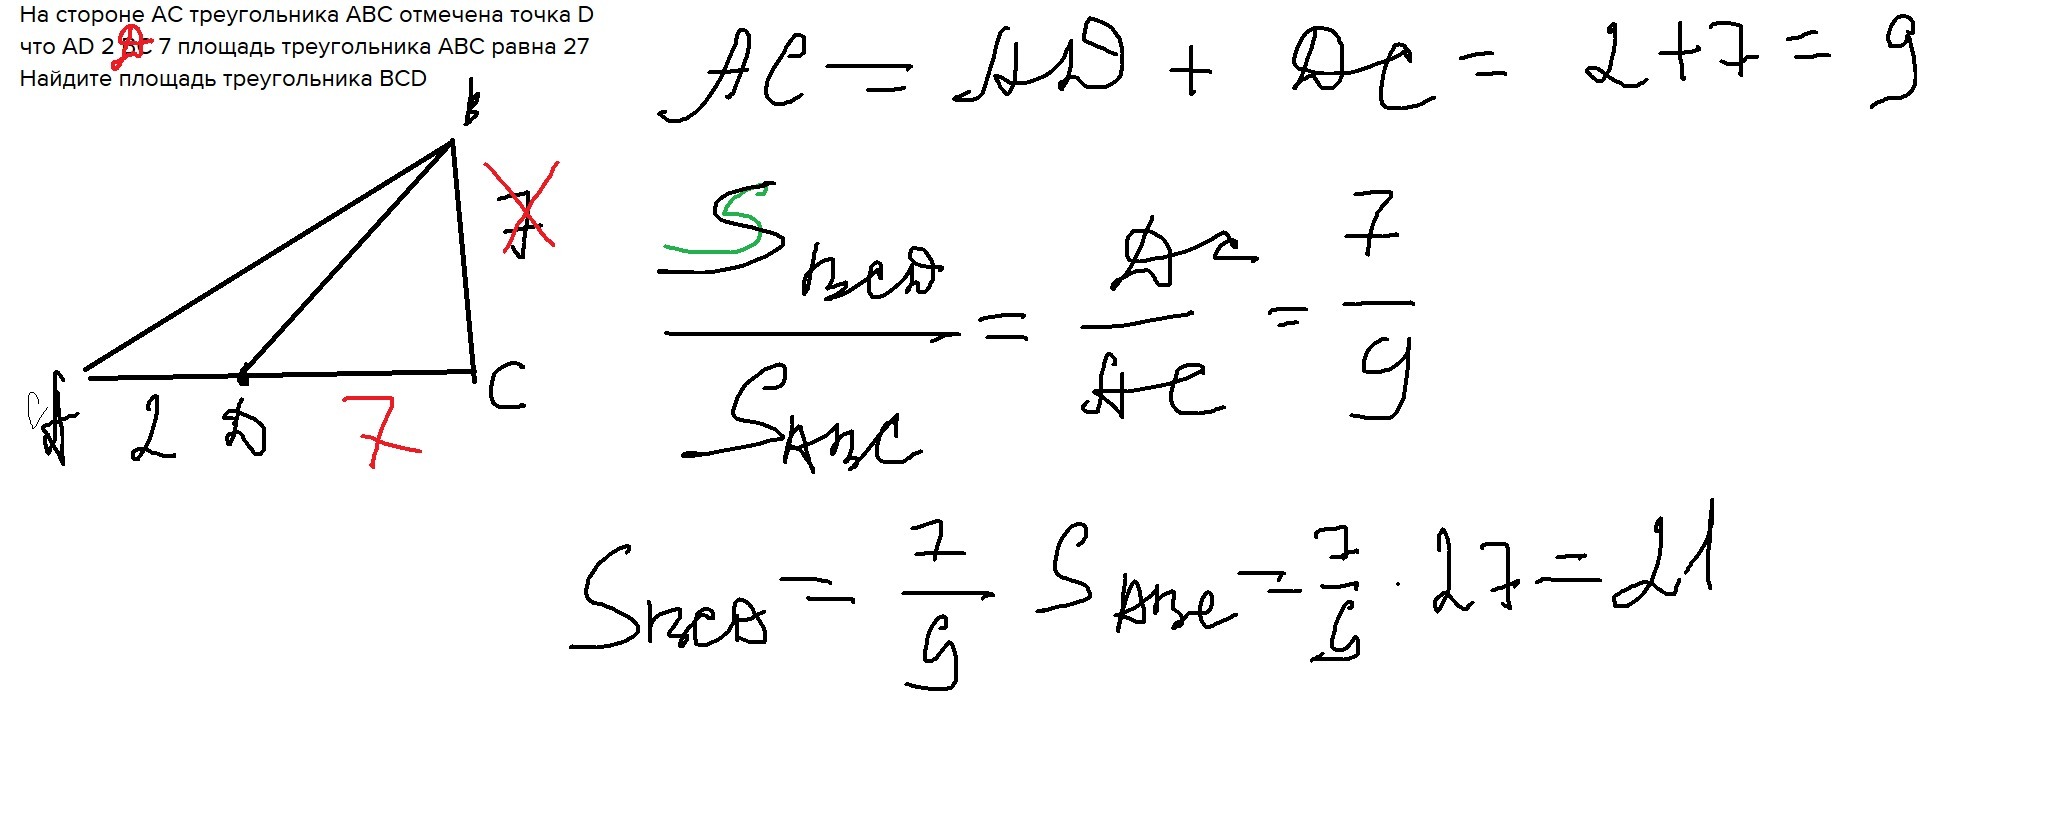 На стороне АС треугольника АВС отмечена точка D
что AD 2 DC 7 площадь треугольника АВС равна 27
Найдите площадь треугольника BCD
B
7
A 2 D 7 C
AC = AD + DC = 2+7 = 9
S BCD / S ABC = DC / AC = 7 / 9
S BCD = 7/9 S ABC = 7/9 · 27 = 21